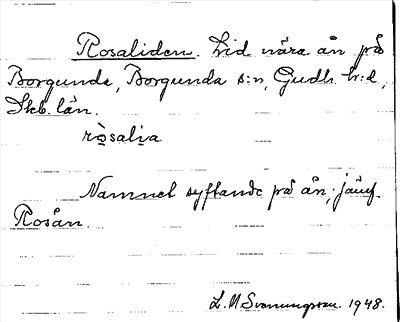 Rosaliden. Lid nära ån på
Borgunda, Borgunda s:n, Gudh. h:d,
Skb. län.
rò̱sali̱a
Namnet syftande på ån, jämf.
Rosån.
L. M. Svenungsson. 1948.